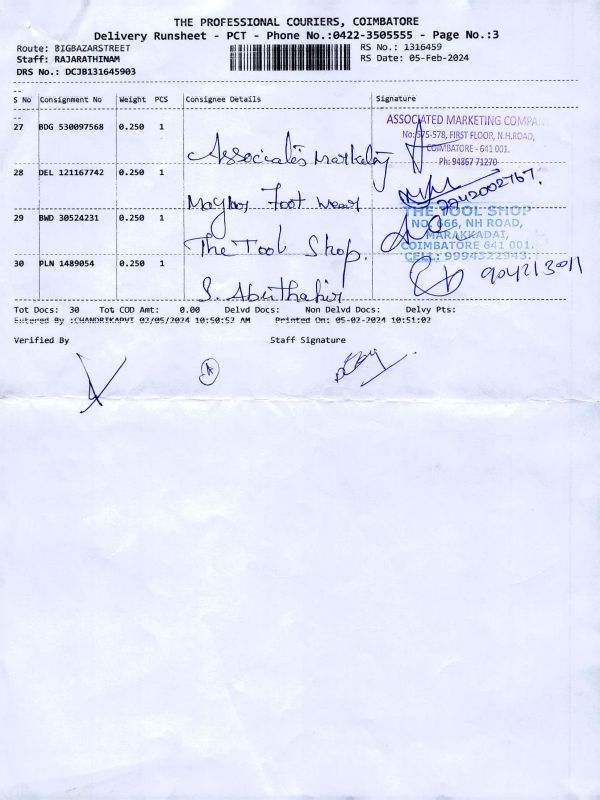 THE PROFESSIONAL COURIERS, COIMBATORE
Delivery Runsheet - PCT - Phone No.:0422-3505555 - Page No.:3
Route: BIGBAZARSTREET RS No.: 1316459
Staff: RAJARATHINAM RS Date: 05-Feb-2024
DRS No.: DCJB131645903
S No Consignment No Weight PCS Consignee Details Signature
27 BDG 530097568 0.250 1 Associates Marketing
ASSOCIATED MARKETING COMPAN
No: 575-578, FIRST FLOOR, N.H.ROAD,
COIMBATORE - 641 001.
Ph: 94867 71270
28 DEL 121167742 0.250 1 Foot Wear
29 BWD 30524231 0.250 1 The Tool Shop.
THE TOOL SHOP
NO. 666, NH ROAD,
MARAKKADAI,
COIMBATORE 641 001.
CELL: 9994522943.
30 PLN 1489054 0.250 1 S. Abuthahir
Tot Docs: 30 Tot COD Amt: 0.00 Delvd Docs: Non Delvd Docs: Delvy Pts:
Entered By :CHANDRIKAPVT 02/05/2024 10:50:52 AM Printed On: 05-02-2024 10:51:02
Verified By Staff Signature